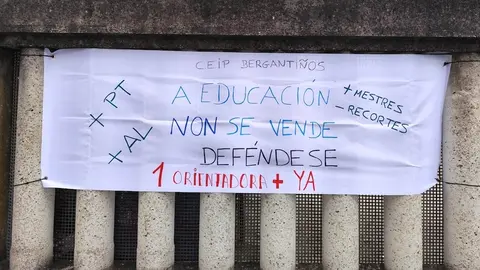 CEIP BERGANTIÑOS
+ PT
+ AL
A EDUCACIÓN
NON SE VENDE
DEFÉNDESE
+ MESTRES
- RECORTES
1 ORIENTADORA + YA